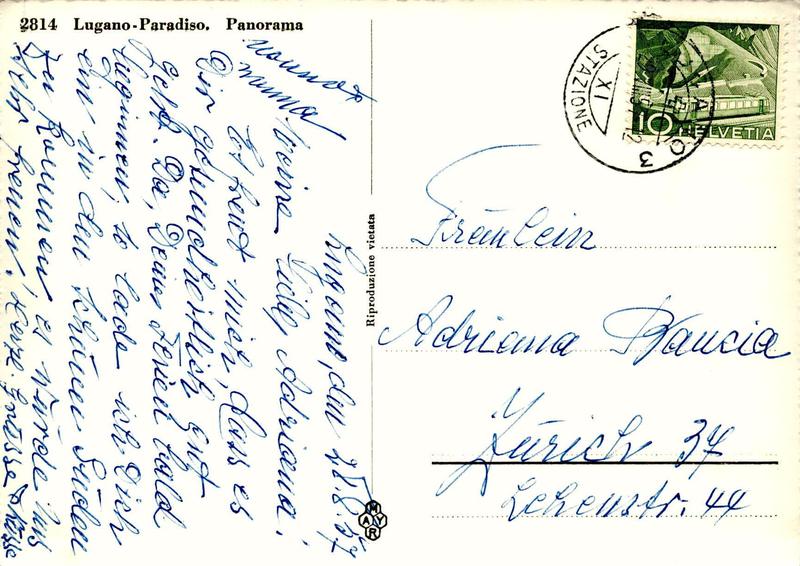 2814 Lugano-Paradiso. Panorama
Riproduzione vietata
MAYR
STAZIONE
XI
3
10 HELVETIA
Lugano, den 25.8.57
Meine Liebe Adriana!
Es freut mich, dass es
Dir gesundheitlich gut
geht. Da, Deine Ferien bald
beginnen, so lade ich Dich
ein in den schönen Süden
zu kommen, es würde uns
sehr freuen. Herzl. Grüsse & Küsse
nonna
Fräulein
Adriana
Zürich 37
Lehenstr. 44